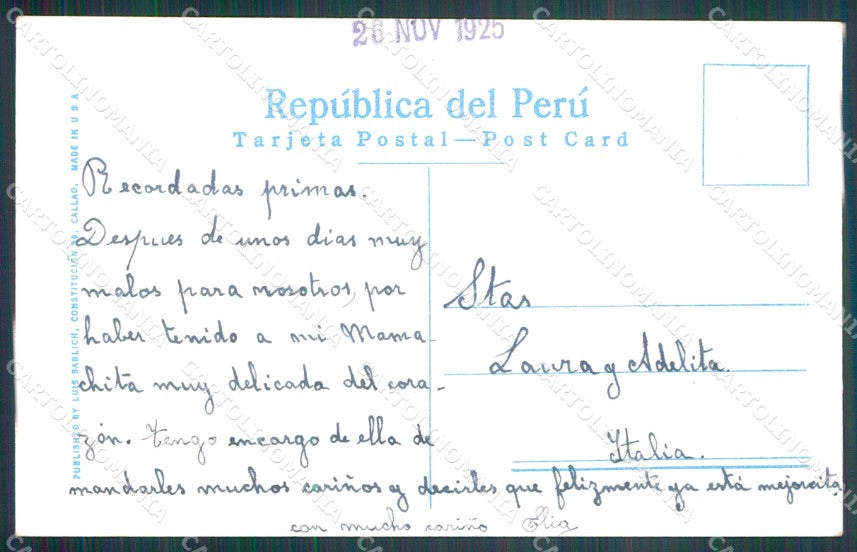 26 NOV 1925
República del Perú
Tarjeta Postal — Post Card
PUBLISHED BY LUIS SABLICH, CONSTITUCIÓN 30, CALLAO. MADE IN U S A
Recordadas primas.
Despues de unos dias muy
malos para nosotros, por
haber tenido a mi Mama-
chita muy delicada del cora-
zón. Tengo encargo de ella de
mandarles muchos cariños y decirles que felizmente ya está mejorcita.
con mucho cariño
Stas
Laura y Adelita.
Italia.
CARTOLINOMANIA